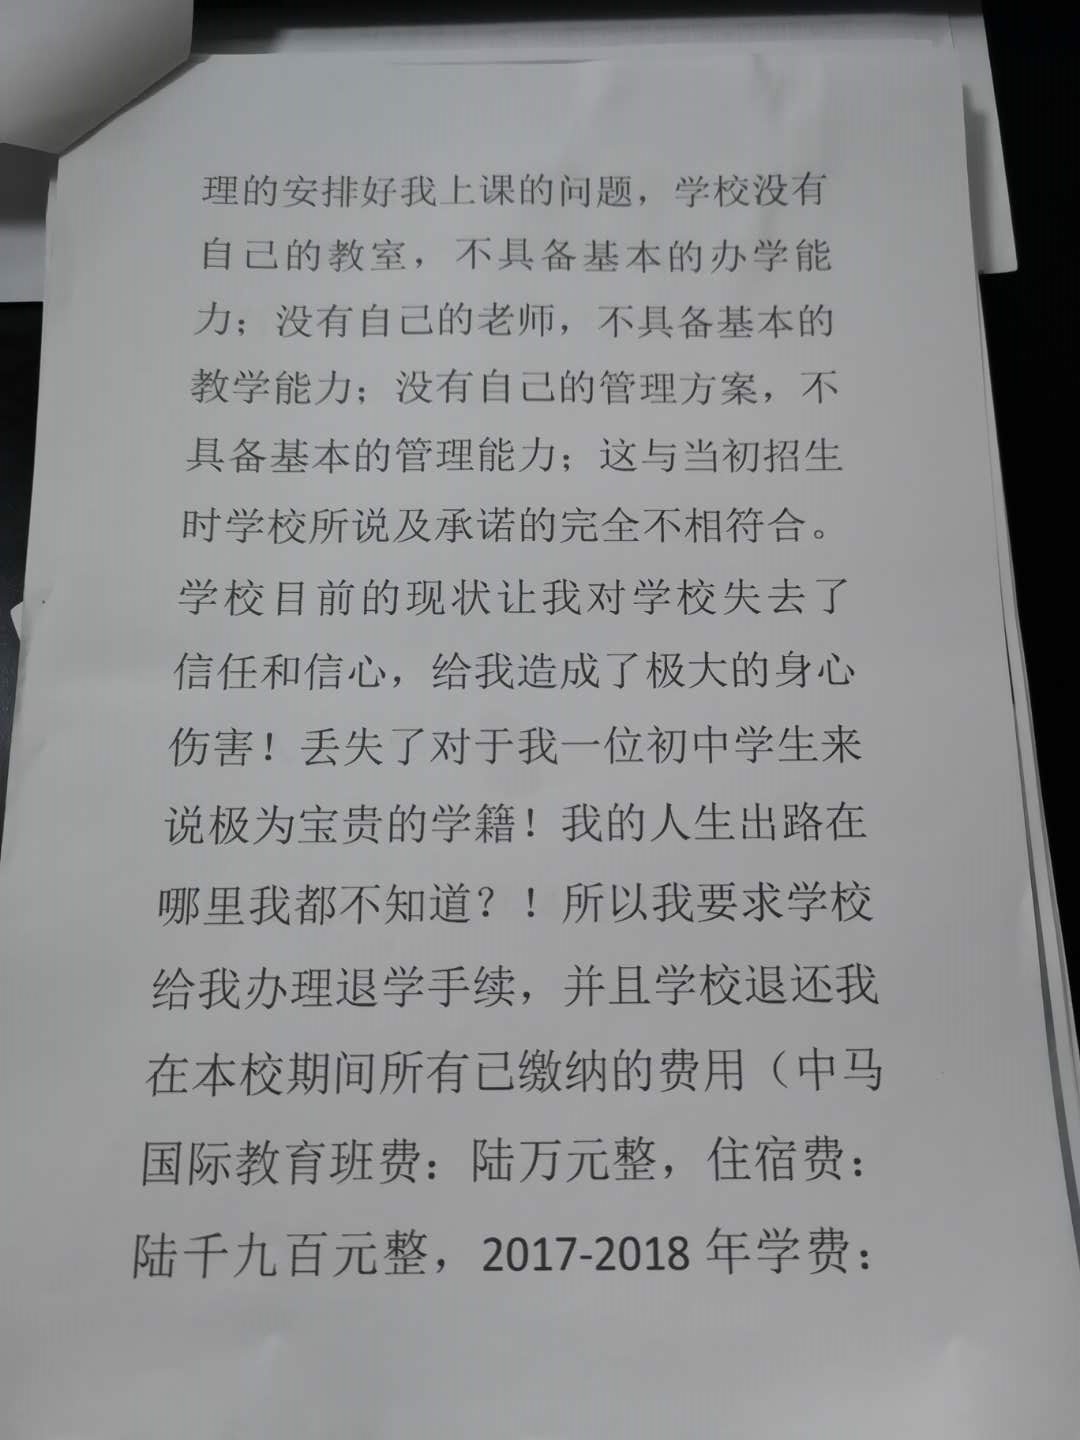 理的安排好我上课的问题，学校没有
自己的教室，不具备基本的办学能
力；没有自己的老师，不具备基本的
教学能力；没有自己的管理方案，不
具备基本的管理能力；这与当初招生
时学校所说及承诺的完全不相符合。
学校目前的现状让我对学校失去了
信任和信心，给我造成了极大的身心
伤害！丢失了对于我一位初中学生来
说极为宝贵的学籍！我的人生出路在
哪里我都不知道？！所以我要求学校
给我办理退学手续，并且学校退还我
在本校期间所有已缴纳的费用（中马
国际教育班费：陆万元整，住宿费：
陆千九百元整，2017-2018 年学费：